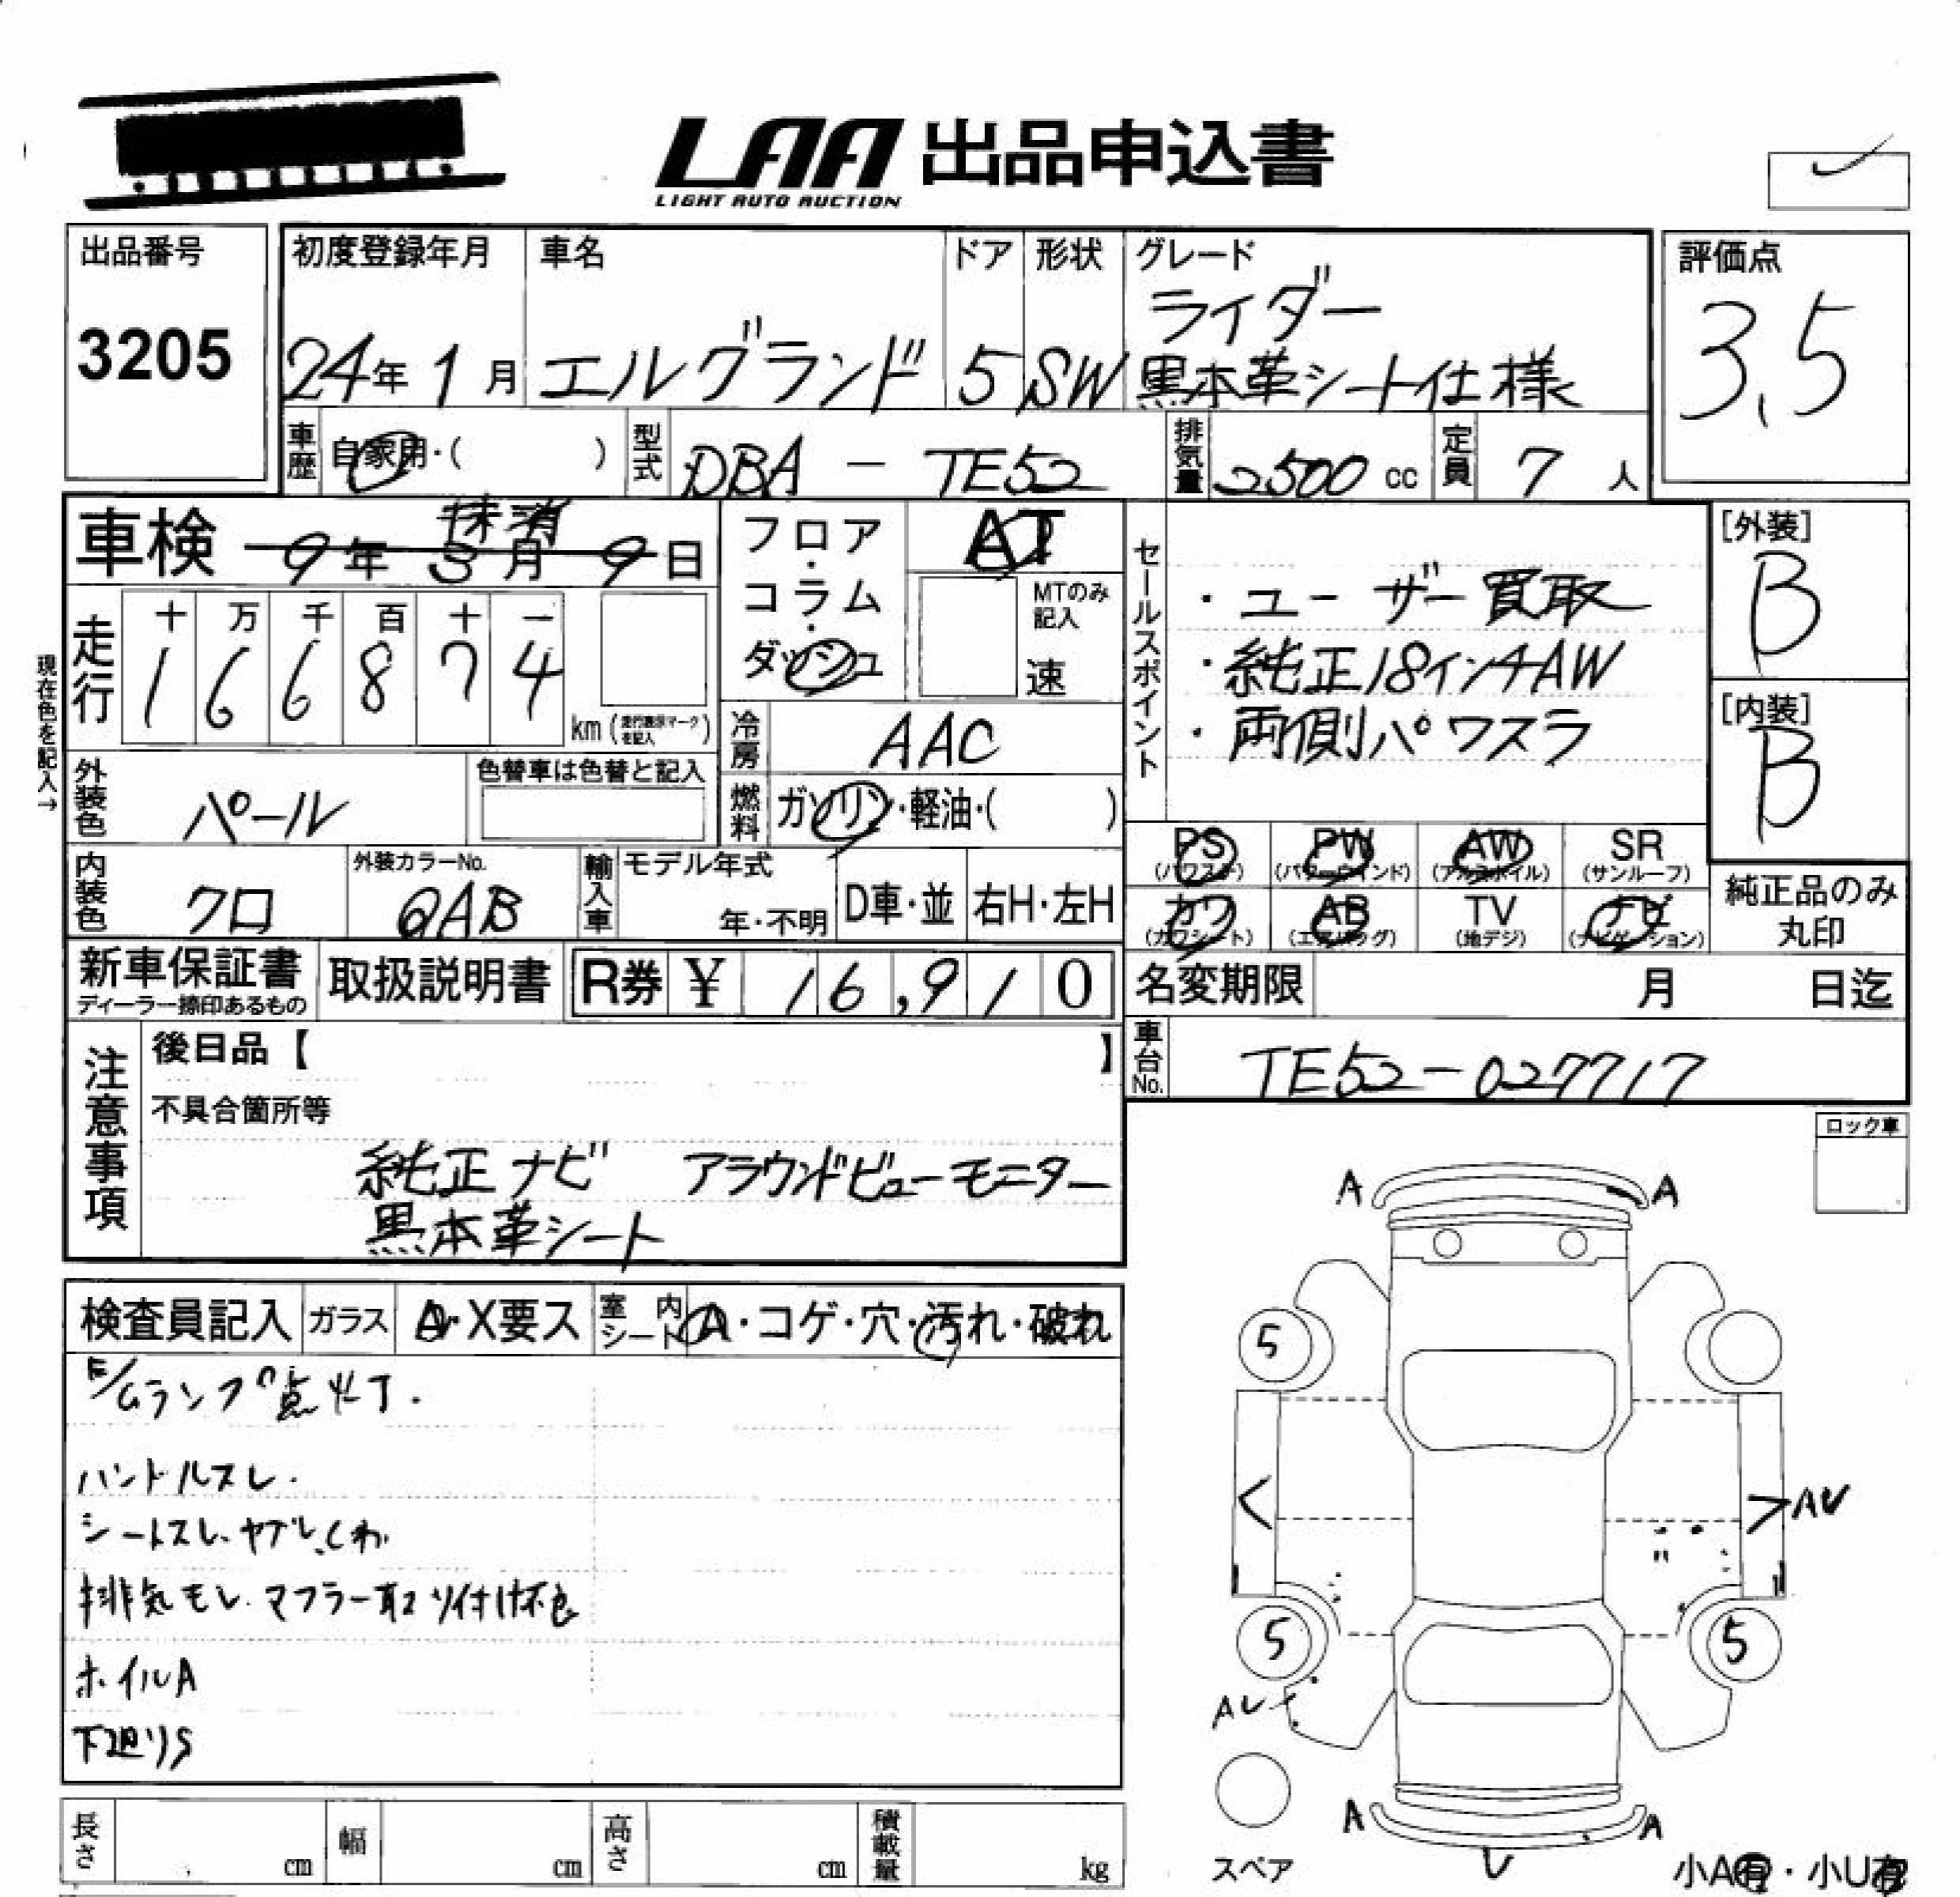 LAA 出品申込書
LIGHT AUTO AUCTION
出品番号
3205
初度登録年月
24年 1月
車名
エルグランド
ドア
5
形状
SW
グレード
ライダー
黒本革シート仕様
評価点
3.5
車歴 自家用・( )
型式 DBA - TE52
排気量 2500 cc
定員 7 人
車検 9年 3月 9日
抹消
フロア・コラム・ダッシュ
AT
MTのみ記入
速
現在色を記入→
走行
十 万 千 百 十 一
1 6 6 8 7 4
km (走行表示マークを記入)
冷房 AAC
燃料 ガソリン・軽油・( )
外装色 パール
色替車は色替と記入
内装色 クロ
外装カラーNo.
QAB
輸入車 モデル年式
年・不明
D車・並
右H・左H
セールスポイント
・ユーザー買取
・純正18インチAW
・両側パワスラ
[外装]
B
[内装]
B
PS (パワステ)
PW (パワーウインド)
AW (アルミホイル)
SR (サンルーフ)
カワ (カワシート)
AB (エアバッグ)
TV (地デジ)
ナビ (ナビゲーション)
純正品のみ
丸印
新車保証書
ディーラー捺印あるもの
取扱説明書
R券 ¥ 16,910
名変期限 月 日迄
車台No. TE52-027717
注意事項
後日品【 】
不具合箇所等
純正ナビ アラウンドビューモニター
黒本革シート
ロック車
検査員記入 ガラス A・X要ス
室内シート A・コゲ・穴・汚れ・破れ
ランプ点灯.
ハンドルスレ.
シートスレ、ヤブレ、しわ
排気モレ. マフラー取り付け不良
ホイルA
下廻りS
A A
5
AU
5 5
AU
A A
U
スペア
小A有・小U有
長さ cm
幅 cm
高さ cm
積載量 kg